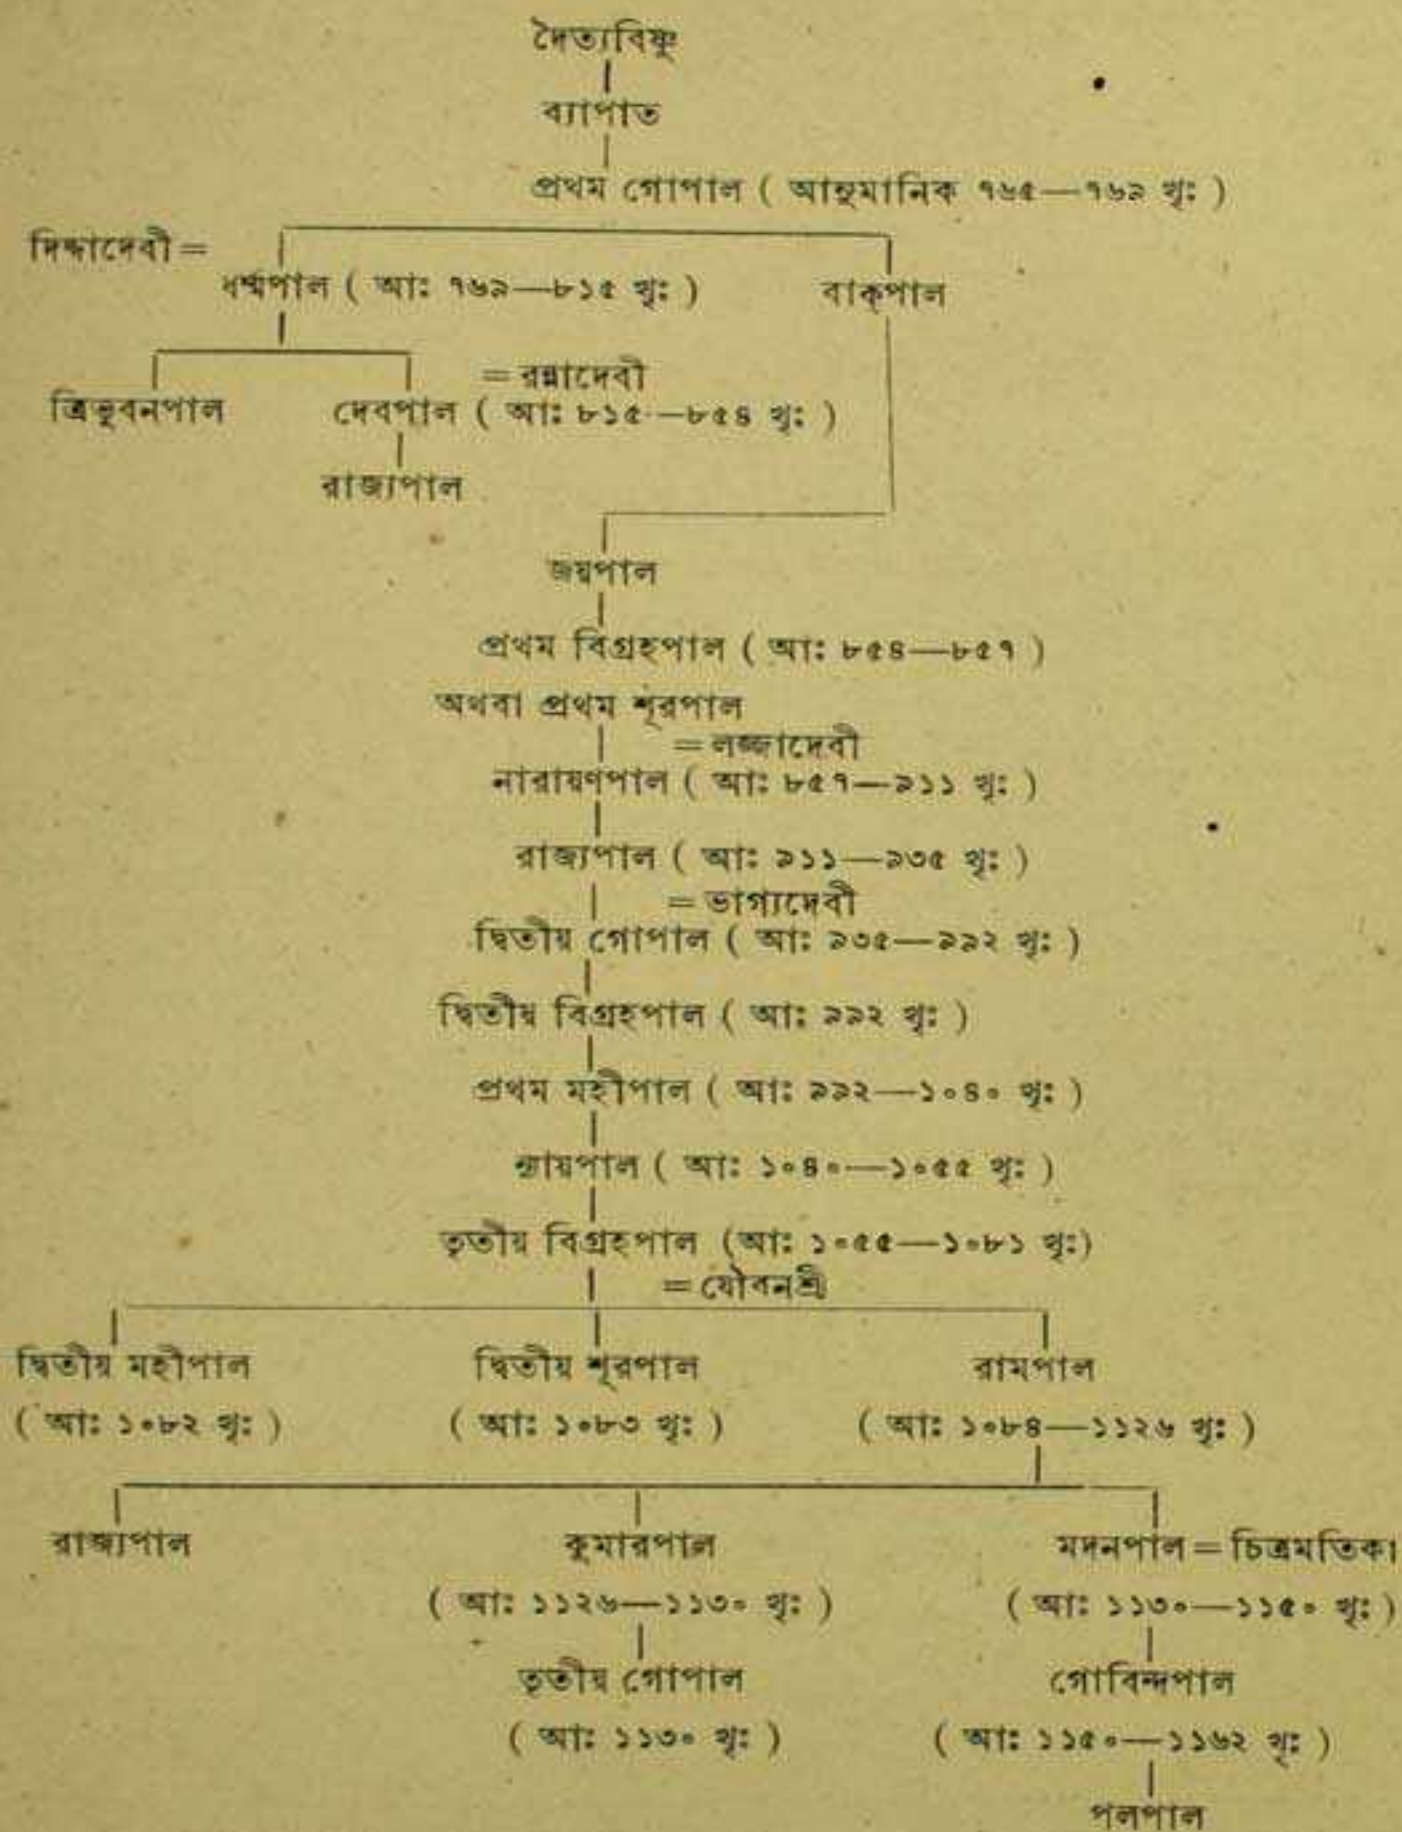 দৈত্যবিষ্ণু
ব্যাপাত
প্রথম গোপাল ( আনুমানিক ৭৬৫—৭৬৯ খৃঃ )
দিদ্দাদেবী =
ধর্ম্মপাল ( আঃ ৭৬৯—৮১৫ খৃঃ ) বাক্‌পাল
= রন্নাদেবী
ত্রিভুবনপাল দেবপাল ( আঃ ৮১৫—৮৫৪ খৃঃ )
রাজ্যপাল
জয়পাল
প্রথম বিগ্রহপাল ( আঃ ৮৫৪—৮৫৭ )
অথবা প্রথম শূরপাল
= লজ্জাদেবী
নারায়ণপাল ( আঃ ৮৫৭—৯১১ খৃঃ )
রাজ্যপাল ( আঃ ৯১১—৯৩৫ খৃঃ )
= ভাগ্যদেবী
দ্বিতীয় গোপাল ( আঃ ৯৩৫—৯৯২ খৃঃ )
দ্বিতীয় বিগ্রহপাল ( আঃ ৯৯২ খৃঃ )
প্রথম মহীপাল ( আঃ ৯৯২—১০৪০ খৃঃ )
ন্যায়পাল ( আঃ ১০৪০—১০৫৫ খৃঃ )
তৃতীয় বিগ্রহপাল (আঃ ১০৫৫—১০৮১ খৃঃ)
= যৌবনশ্রী
দ্বিতীয় মহীপাল দ্বিতীয় শূরপাল রামপাল
( আঃ ১০৮২ খৃঃ ) ( আঃ ১০৮৩ খৃঃ ) ( আঃ ১০৮৪—১১২৬ খৃঃ )
রাজ্যপাল কুমারপাল মদনপাল = চিত্রমতিকা
( আঃ ১১২৬—১১৩০ খৃঃ ) ( আঃ ১১৩০—১১৫০ খৃঃ )
তৃতীয় গোপাল গোবিন্দপাল
( আঃ ১১৩০ খৃঃ ) ( আঃ ১১৫০—১১৬২ খৃঃ )
পলপাল